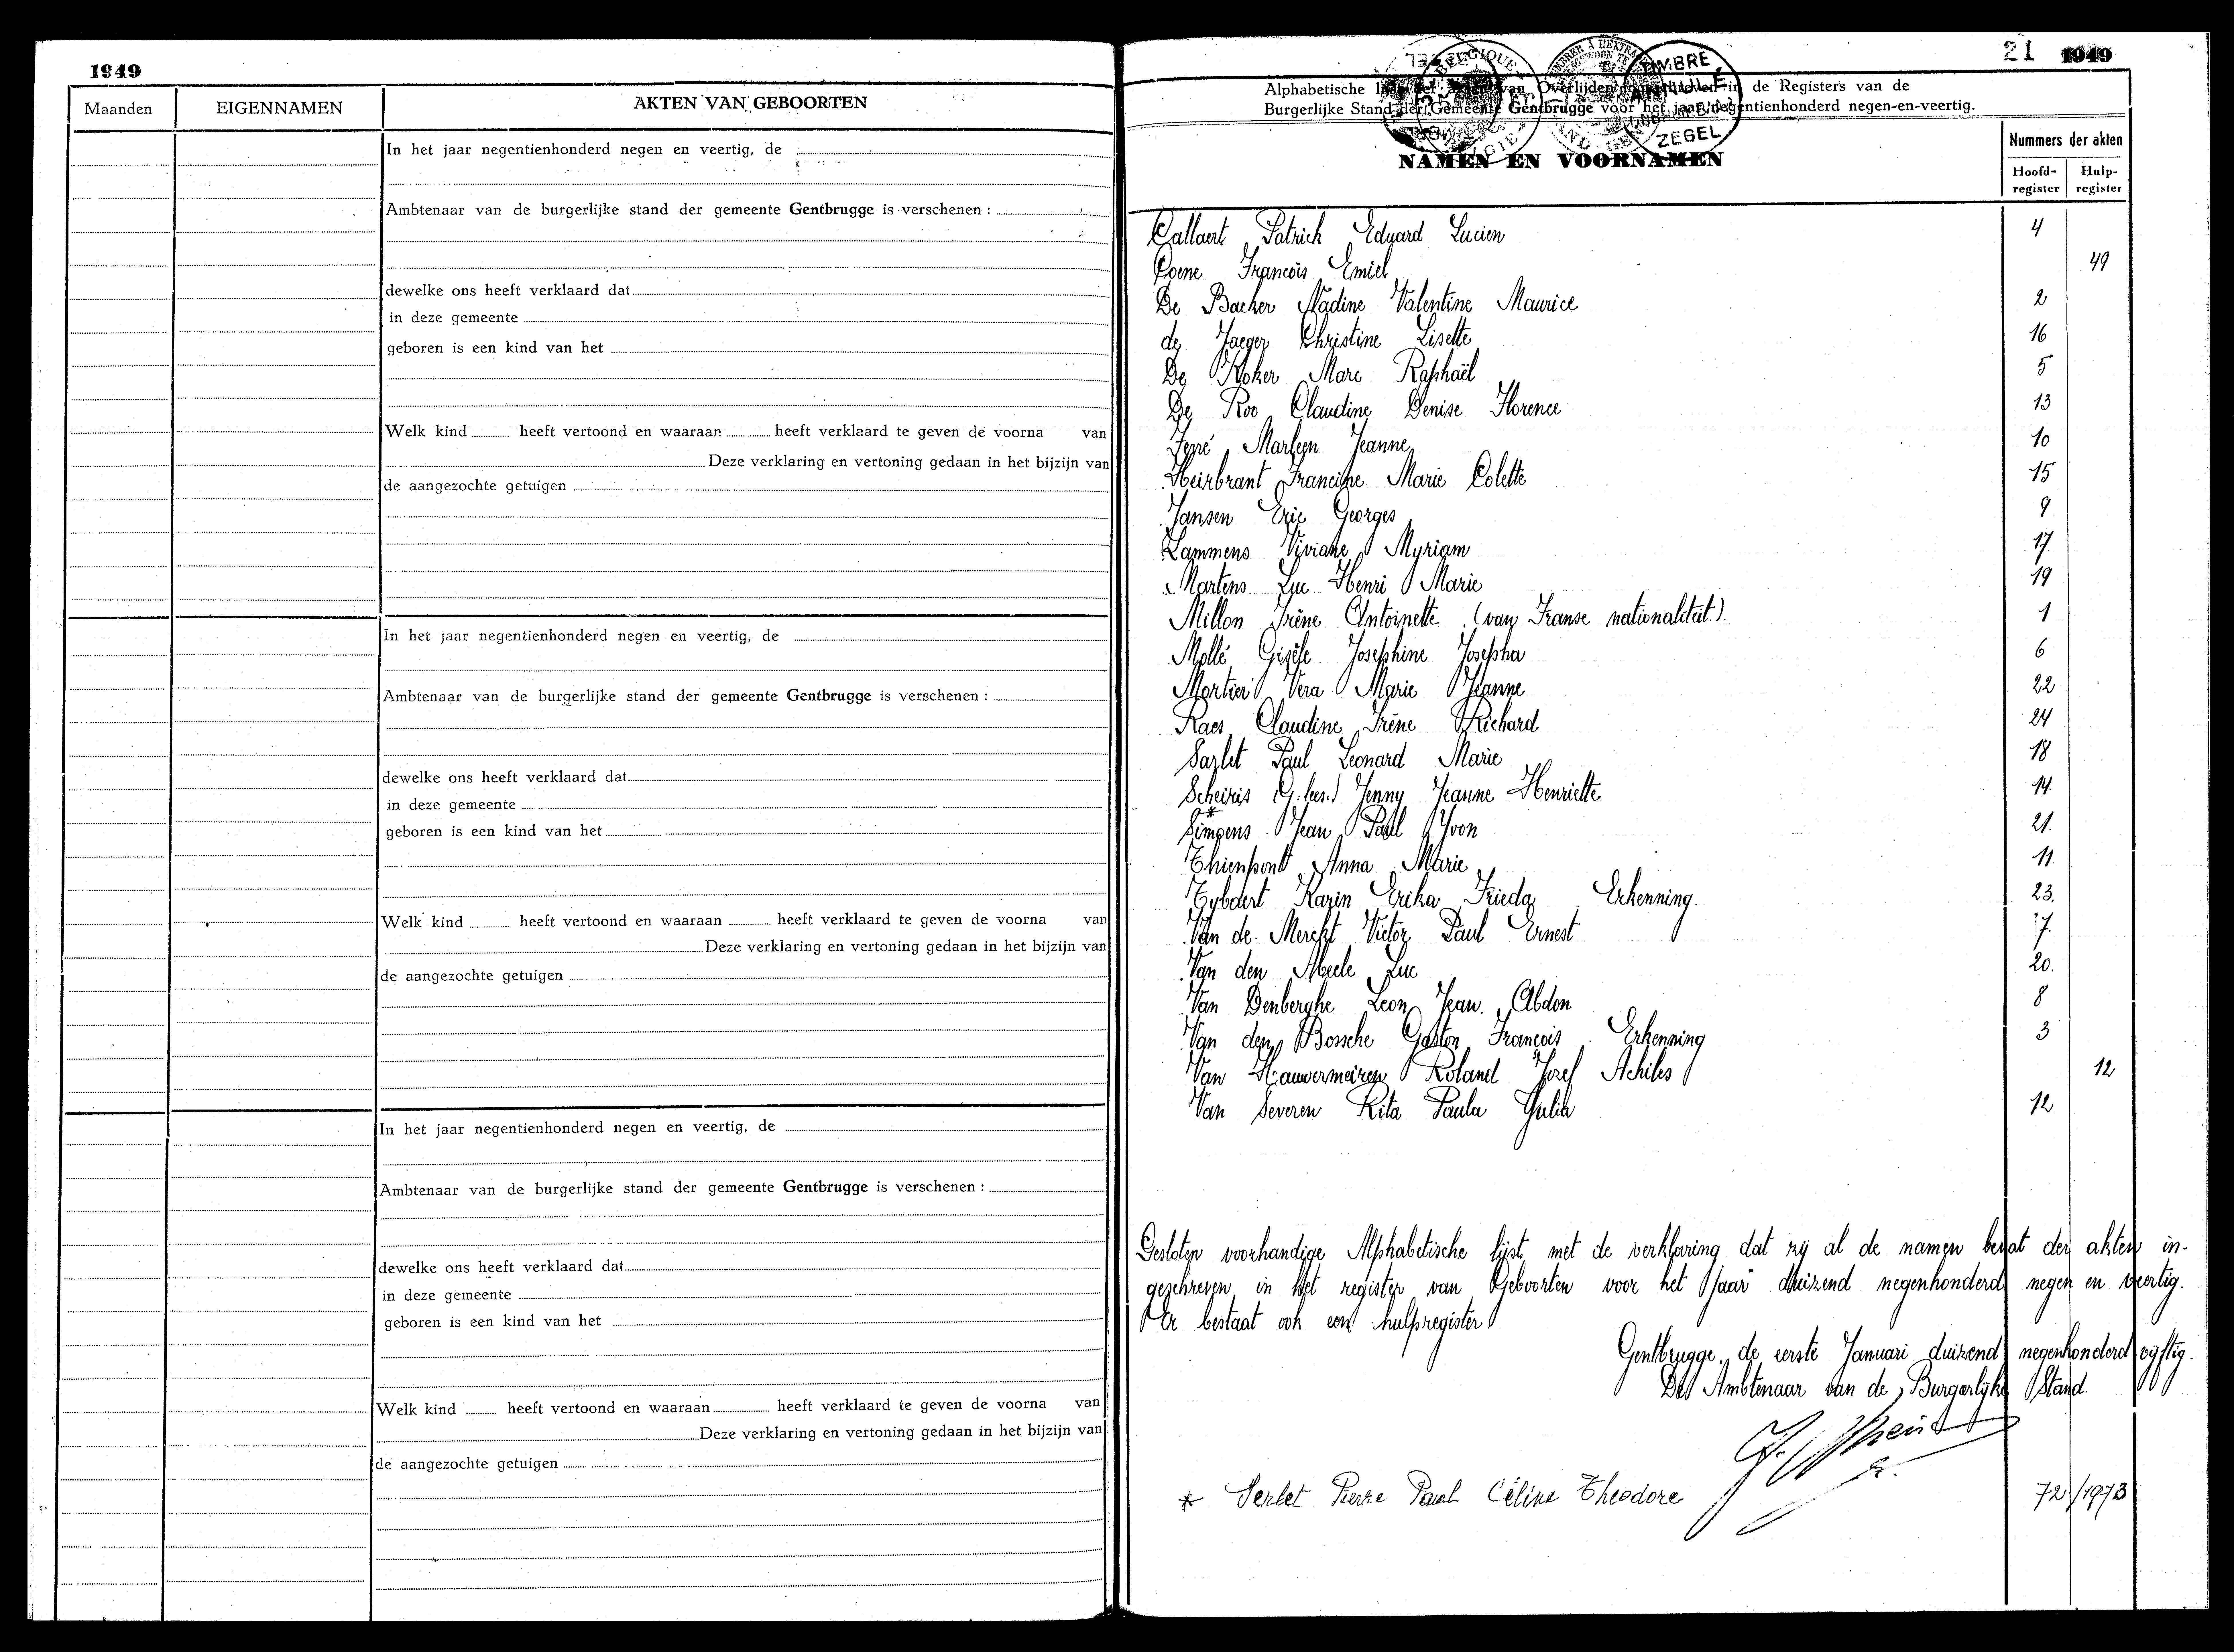 1949
Maanden EIGENNAMEN AKTEN VAN GEBOORTEN
In het jaar negentienhonderd negen en veertig, de
Ambtenaar van de burgerlijke stand der gemeente Gentbrugge is verschenen :
dewelke ons heeft verklaard dat
in deze gemeente
geboren is een kind van het
Welk kind heeft vertoond en waaraan heeft verklaard te geven de voorna van
Deze verklaring en vertoning gedaan in het bijzijn van
de aangezochte getuigen
In het jaar negentienhonderd negen en veertig, de
Ambtenaar van de burgerlijke stand der gemeente Gentbrugge is verschenen :
dewelke ons heeft verklaard dat
in deze gemeente
geboren is een kind van het
Welk kind heeft vertoond en waaraan heeft verklaard te geven de voorna van
Deze verklaring en vertoning gedaan in het bijzijn van
de aangezochte getuigen
In het jaar negentienhonderd negen en veertig, de
Ambtenaar van de burgerlijke stand der gemeente Gentbrugge is verschenen :
dewelke ons heeft verklaard dat
in deze gemeente
geboren is een kind van het
Welk kind heeft vertoond en waaraan heeft verklaard te geven de voorna van
Deze verklaring en vertoning gedaan in het bijzijn van
de aangezochte getuigen
21 1949
Alphabetische van Overlijden in de Registers van de
Burgerlijke Stand der Gemeente Gentbrugge voor het jaar negentienhonderd negen-en-veertig.
BELGIQUE
TIMBRE
ANNULÉ
ZEGEL
NAMEN EN VOORNAMEN
Nummers der akten
Hoofd-register Hulp-register
Callaert Patrick Eduard Lucien 4
Coene François Emiel 49
De Backer Nadine Valentine Maurice 2
de Jaeger Christine Lisette 16
De Koker Marc Raphaël 5
De Roo Claudine Denise Florence 13
Ferré Marleen Jeanne 10
Heirbrant Francine Marie Colette 15
Jansen Eric Georges 9
Lammens Viviane Myriam 17
Martens Luc Henri Marie 19
Millon Irène Antoinette (van Franse nationaliteit.) 1
Mollé Gisèle Josephine Josepha 6
Mortier Vera Marie Jeanne 22
Raes Claudine Irène Richard 24
Sarlet Paul Leonard Marie 18
Scheiris (G. lees.) Jenny Jeanne Henriette 14.
*
Simoens Jean Paul Yvon 21.
Thienpont Anna Marie 11.
Tybaert Karin Erika Frieda Erkenning. 23.
Van de Merckt Victor Paul Ernest 7.
Van den Abeele Luc 20.
Van Denberghe Leon Jean Abdon 8
Van den Bossche Gaston François Erkenning 3
Van Hauwermeiren Roland Jozef Achiles 12
Van Severen Rita Paula Julia 12
Gesloten voorhandige Alphabetische lijst met de verklaring dat zij al de namen bevat der akten in-
geschreven in het register van Geboorten voor het jaar duizend negenhonderd negen en veertig.
Er bestaat ook een hulpregister
Gentbrugge, de eerste Januari duizend negenhonderd vijftig.
De Ambtenaar van de Burgerlijke Stand.
* Serlet Pierre Paul Céline Theodore 72/1973